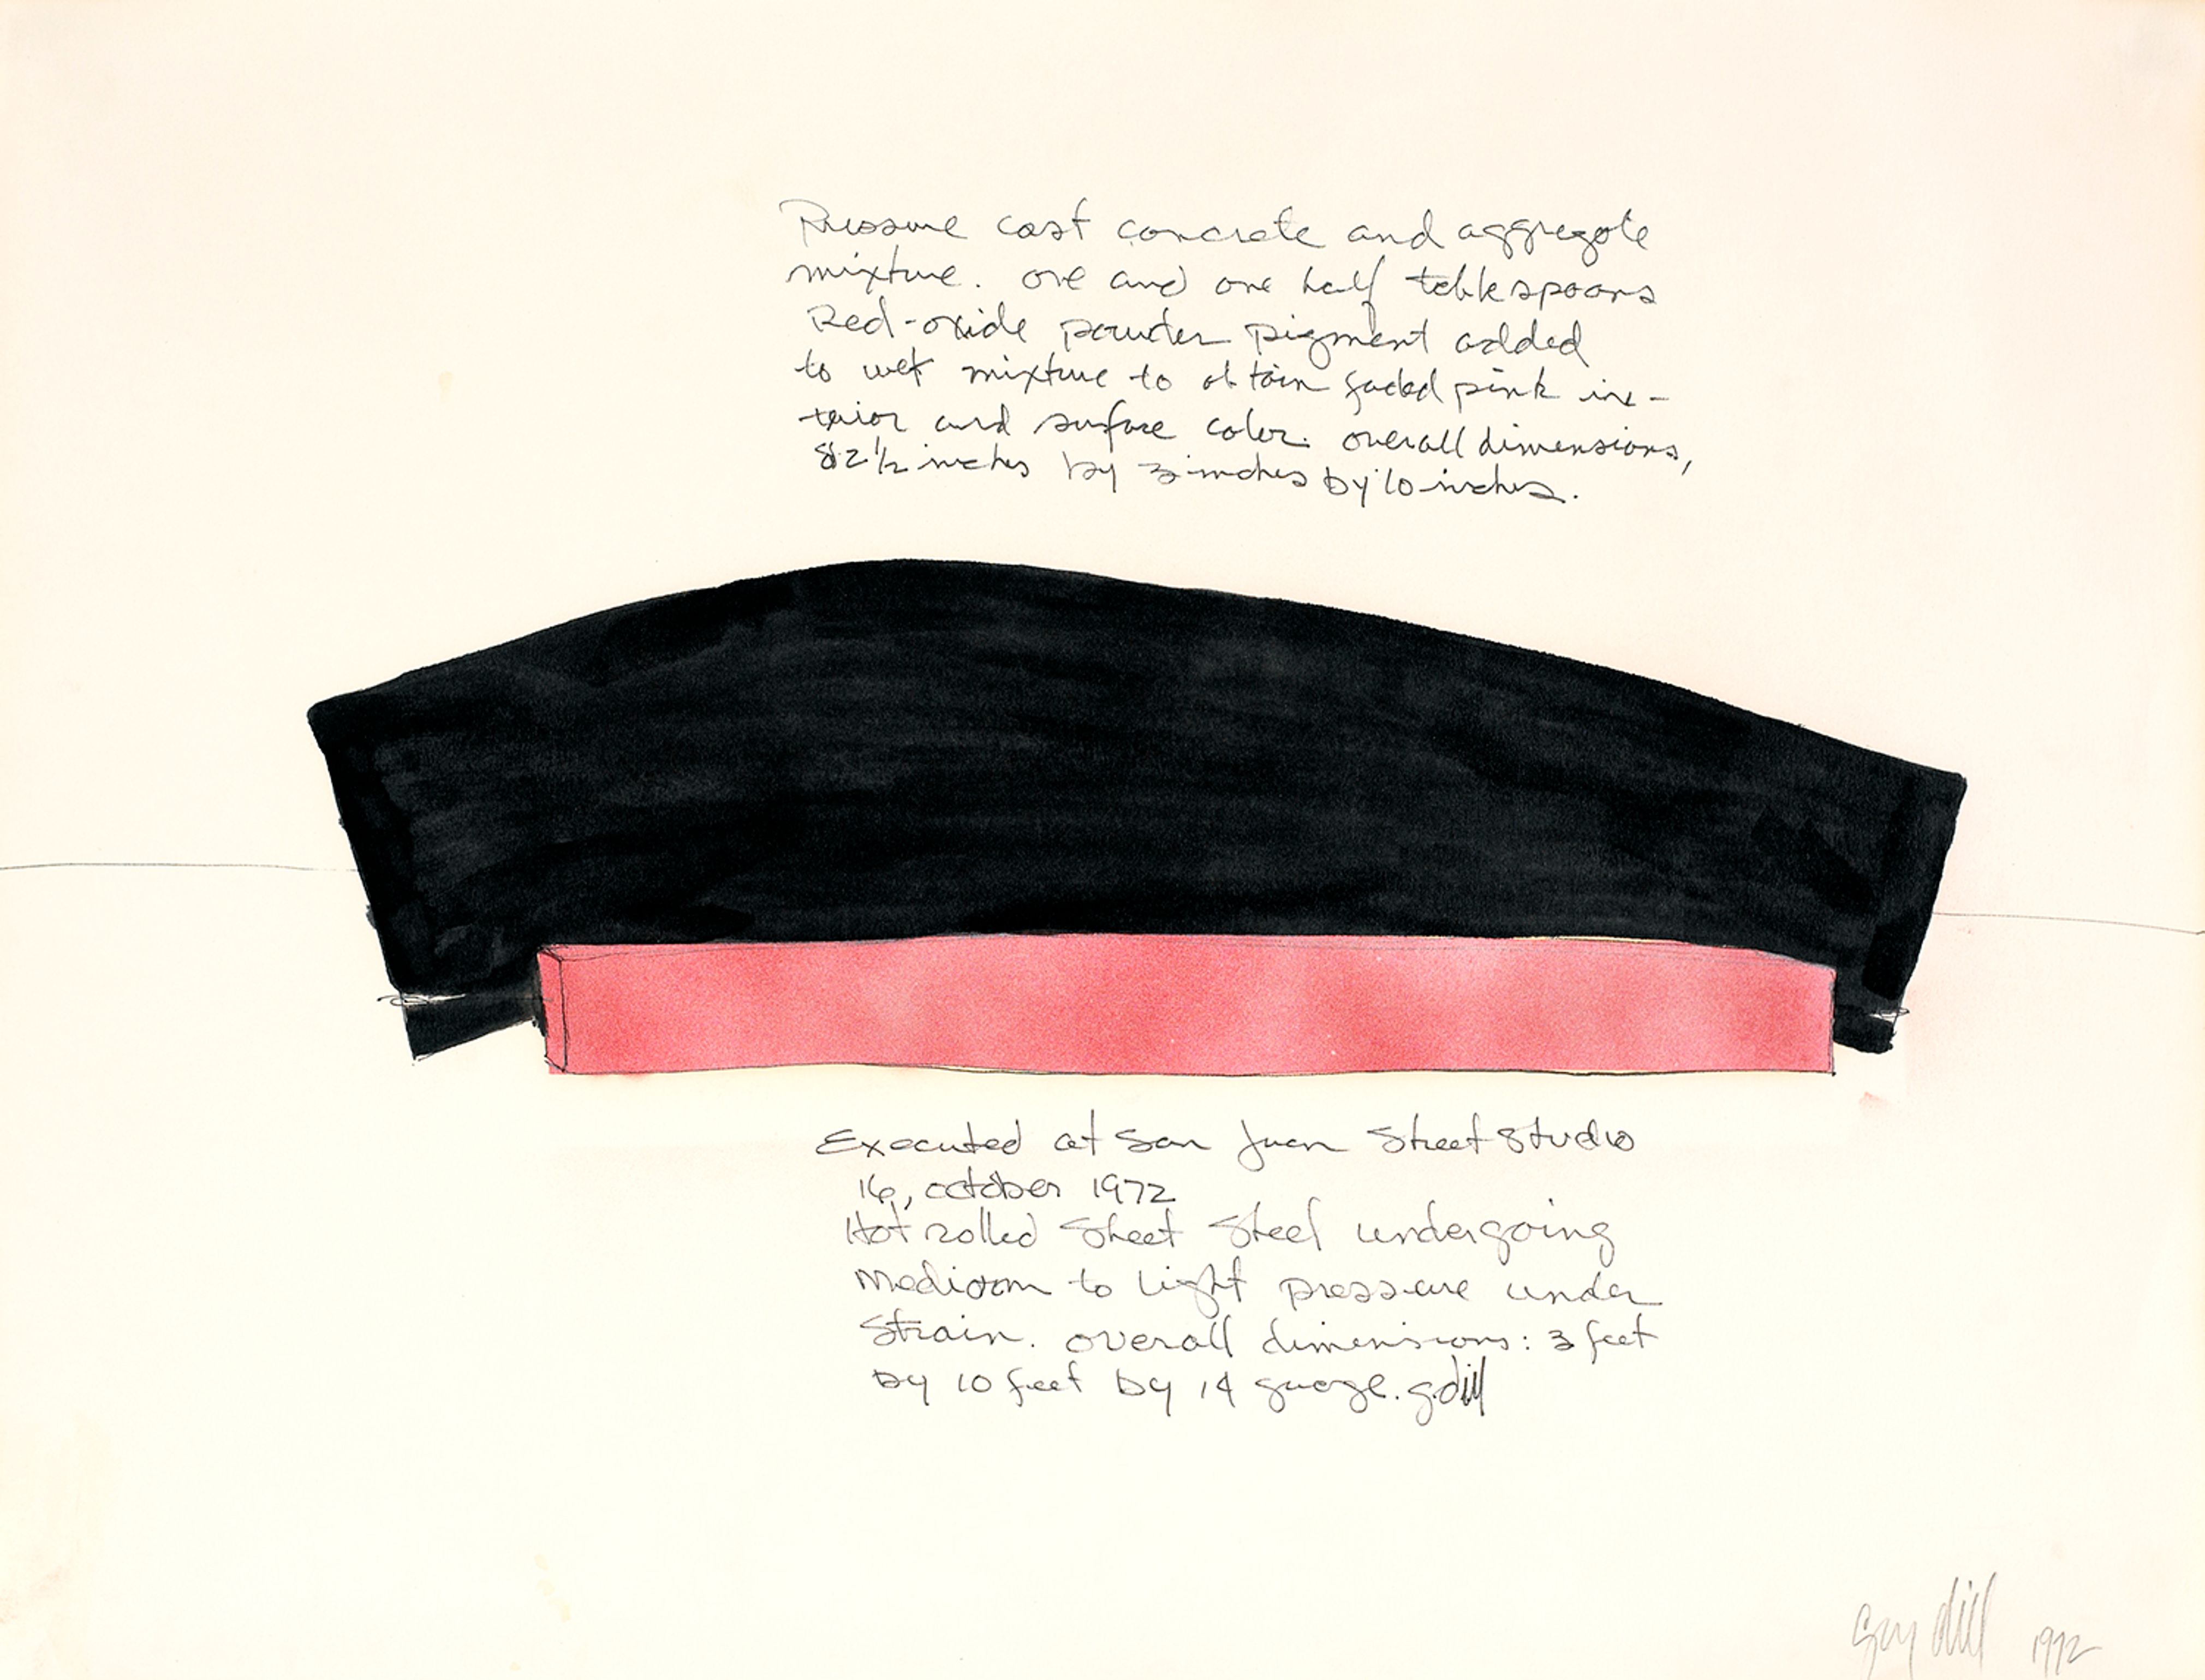 Pressure cast concrete and aggregate
mixture. one and one half tablespoons
Red-oxide powder pigment added
to wet mixture to obtain faded pink in-
terior and surface color. overall dimensions,
82 1/2 inches by 3 inches by 10 inches.
Executed at San Juan Street Studio
16, october 1972
Hot rolled Sheet Steel undergoing
Medium to Light pressure under
Strain. overall dimensions: 3 feet
by 10 feet by 14 guage. g.dill
Guy dill 1972